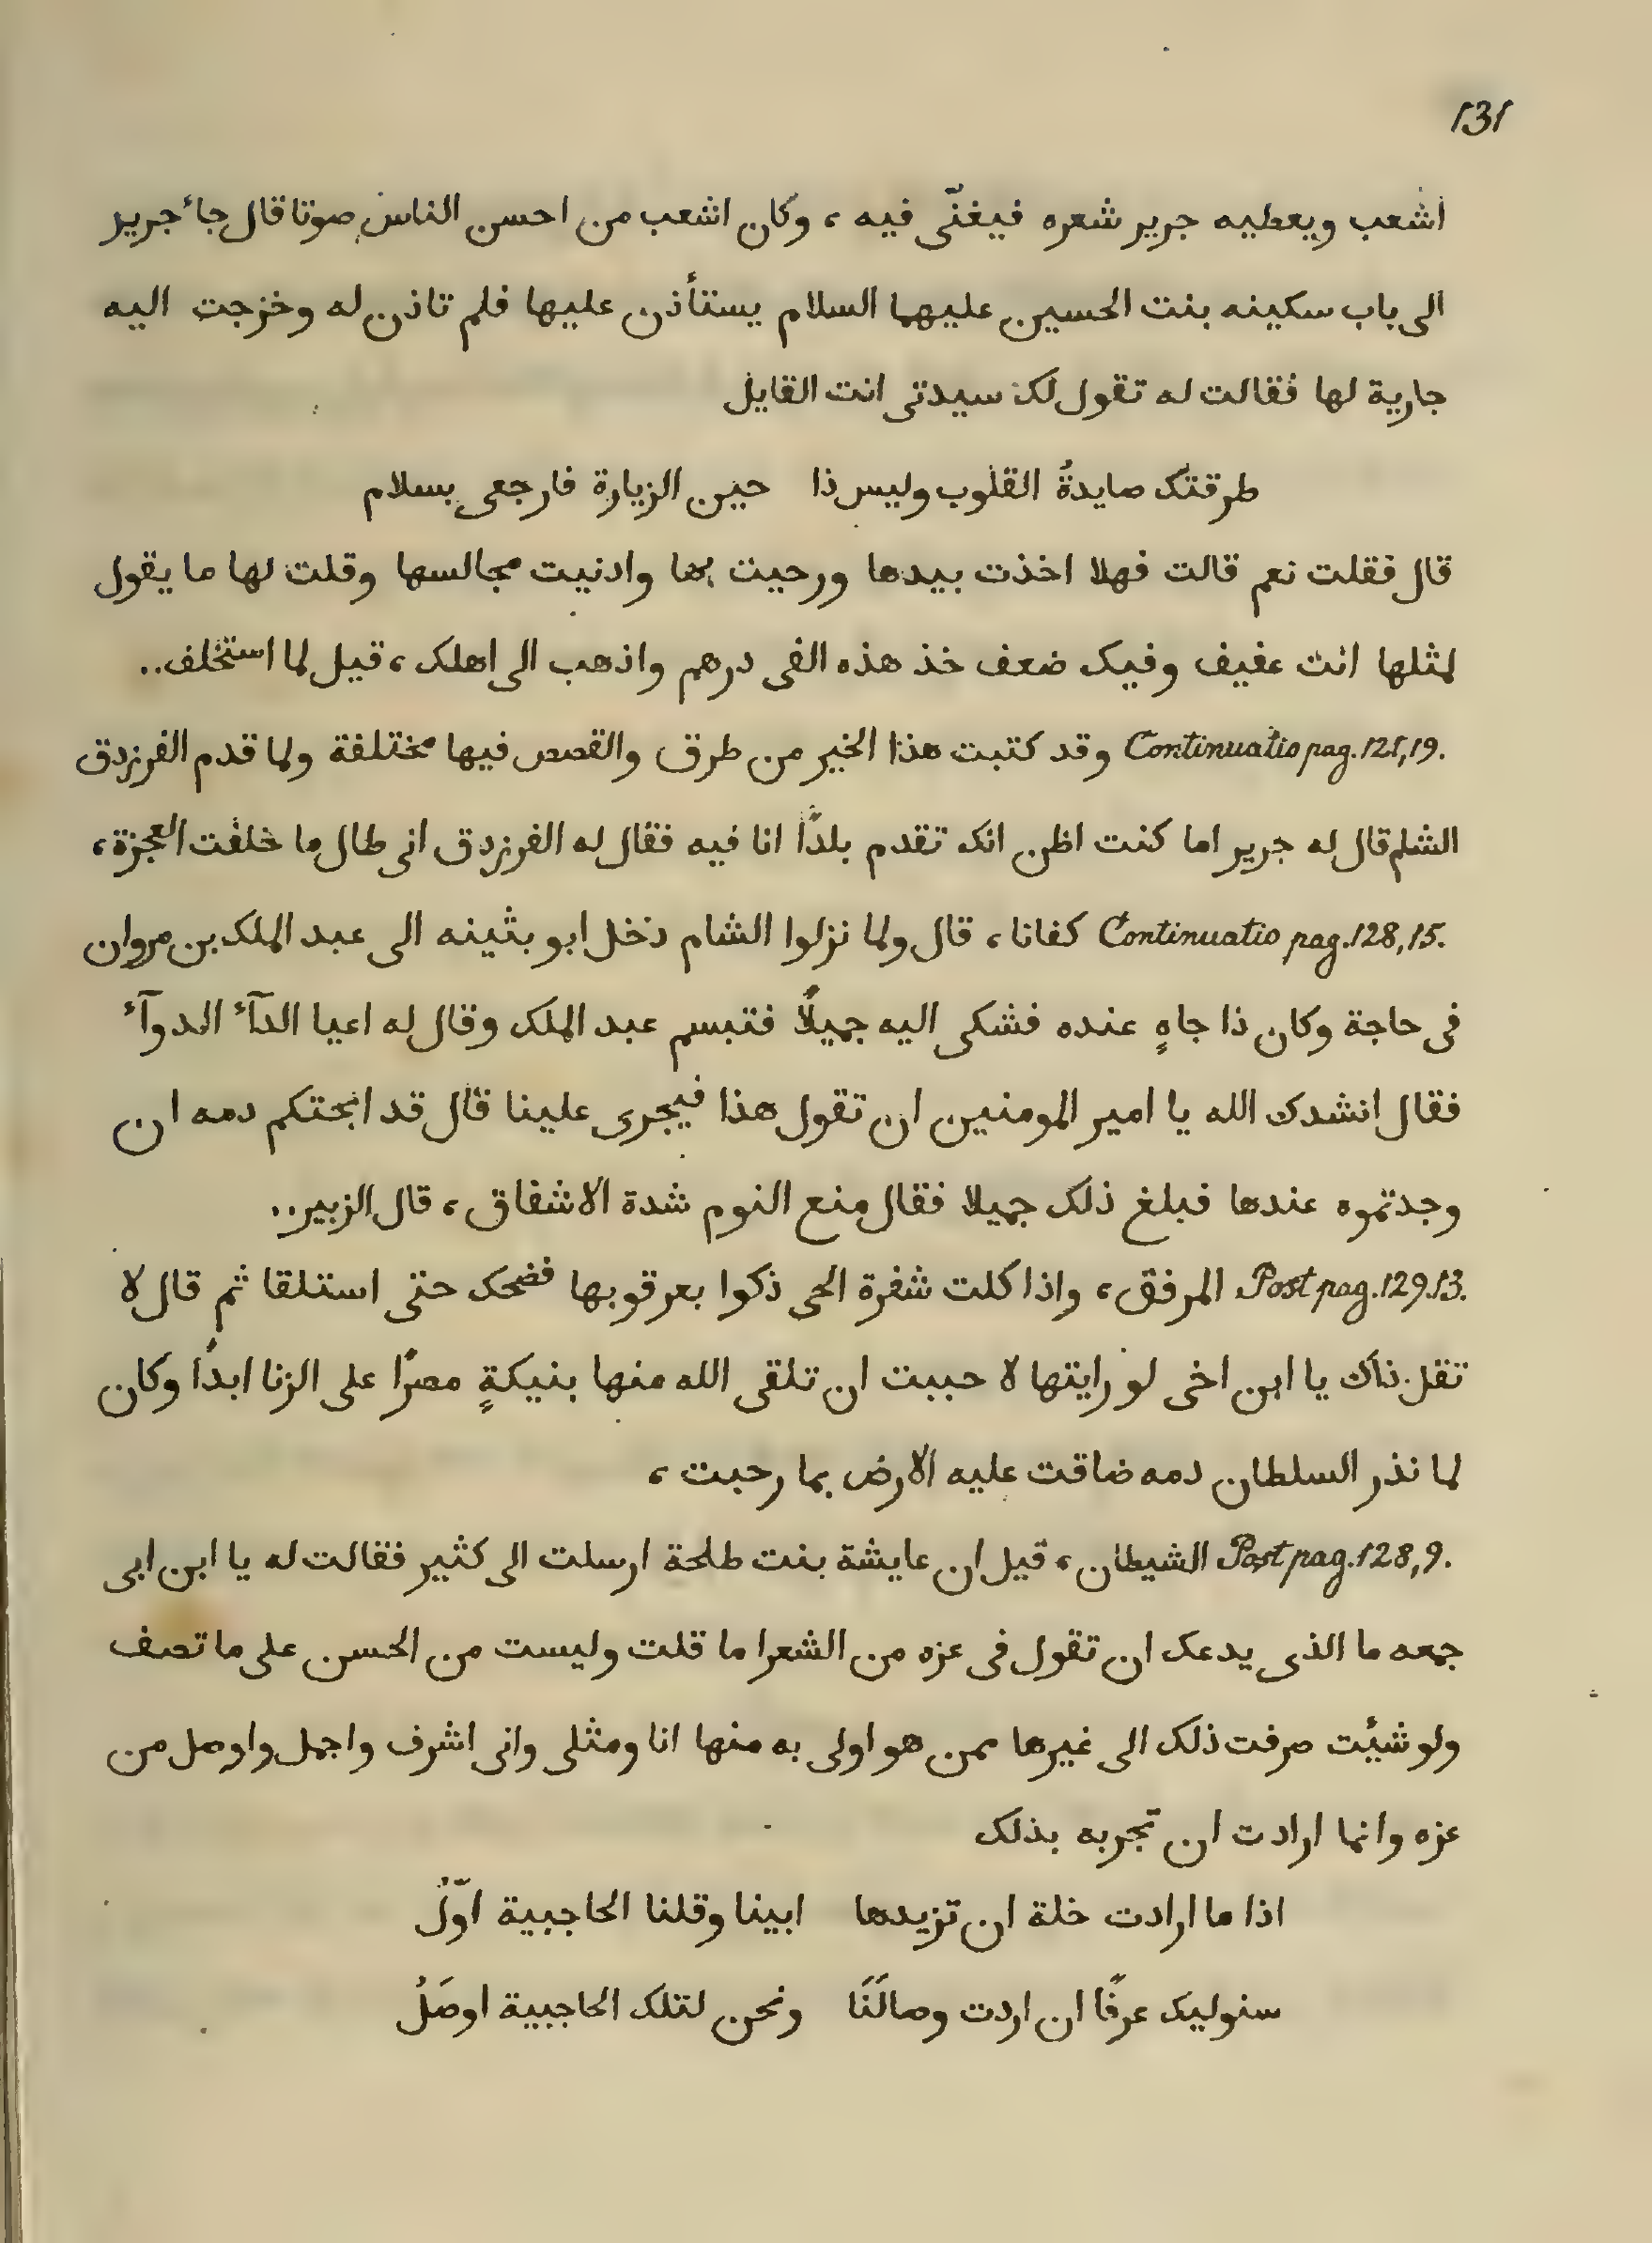 131
اشعب ويعطيه جرير شعره فيغنّى فيه ، وكان اشعب من احسن الناس صوتا قال جاء جرير
الى باب سكينه بنت الحسين عليهما السلام يستأذن عليها فلم تاذن له وخرجت اليه
جارية لها فقالت له تقول لك سيدتى انت القايل
طرقتك صايدةُ القلوب وليس ذا حين الزيارة فارجعى بسلام
قال فقلت نعم قالت فهلا اخذت بيدها ورحبت بها وادنيت مجالسها وقلت لها ما يقول
لمثلها انت عفيف وفيك ضعف خذ هذه الفى درهم واذهب الى اهلك ، قيل لما استخلف..
Continuatio pag. 121,19. وقد كتبت هذا الخبر من طرق والقصص فيها مختلفة ولما قدم الفرزدق
الشام قال له جرير اما كنت اظن انك تقدم بلدًا انا فيه فقال له الفرزدق انى طال ما خلفت العجزة ،
Continuatio pag. 128,15. كفانا ، قال ولما نزلوا الشام دخل ابو بثينه الى عبد الملك بن مروان
فى حاجة وكان ذا جاهٍ عنده فشكى اليه جميلًا فتبسم عبد الملك وقال له اعيا الدآء الدوآء
فقال انشدك الله يا امير المومنين ان تقول هذا فيجرى علينا قال قد ابحتكم دمه ان
وجدتموه عندها فبلغ ذلك جميلا فقال منع النوم شدة الاشفاق ، قال الزبير..
Post pag. 129.13. المرفق ، واذا كلت شفرة الحى ذكوا بعرقوبها فضحك حتى استلقا ثم قال لا
تقل ذاك يا ابن اخى لو رايتها لا حببت ان تلقى الله منها بنيكةٍ مصرًا على الزنا ابدًا وكان
لما نذر السلطان دمه ضاقت عليه الارض بما رحبت ،
Post pag. 128,9. الشيطان ، قيل ان عايشة بنت طلحة ارسلت الى كثير فقالت له يا ابن ابى
جمعه ما الذى يدعك ان تقول فى عزه من الشعرا ما قلت وليست من الحسن على ما تصف
ولو شيئت صرفت ذلك الى غيرها ممن هو اولى به منها انا ومثلى وانى اشرف واجمل واوصل من
عزه وانما ارادت ان تجربه بذلك
اذا ما ارادت خلة ان تزيدها ابينا وقلنا الحاجبية اوّلُ
سنوليك عرفًا ان اردت وصالَنَا ونحن لتلك الحاجبية اوصَلُ